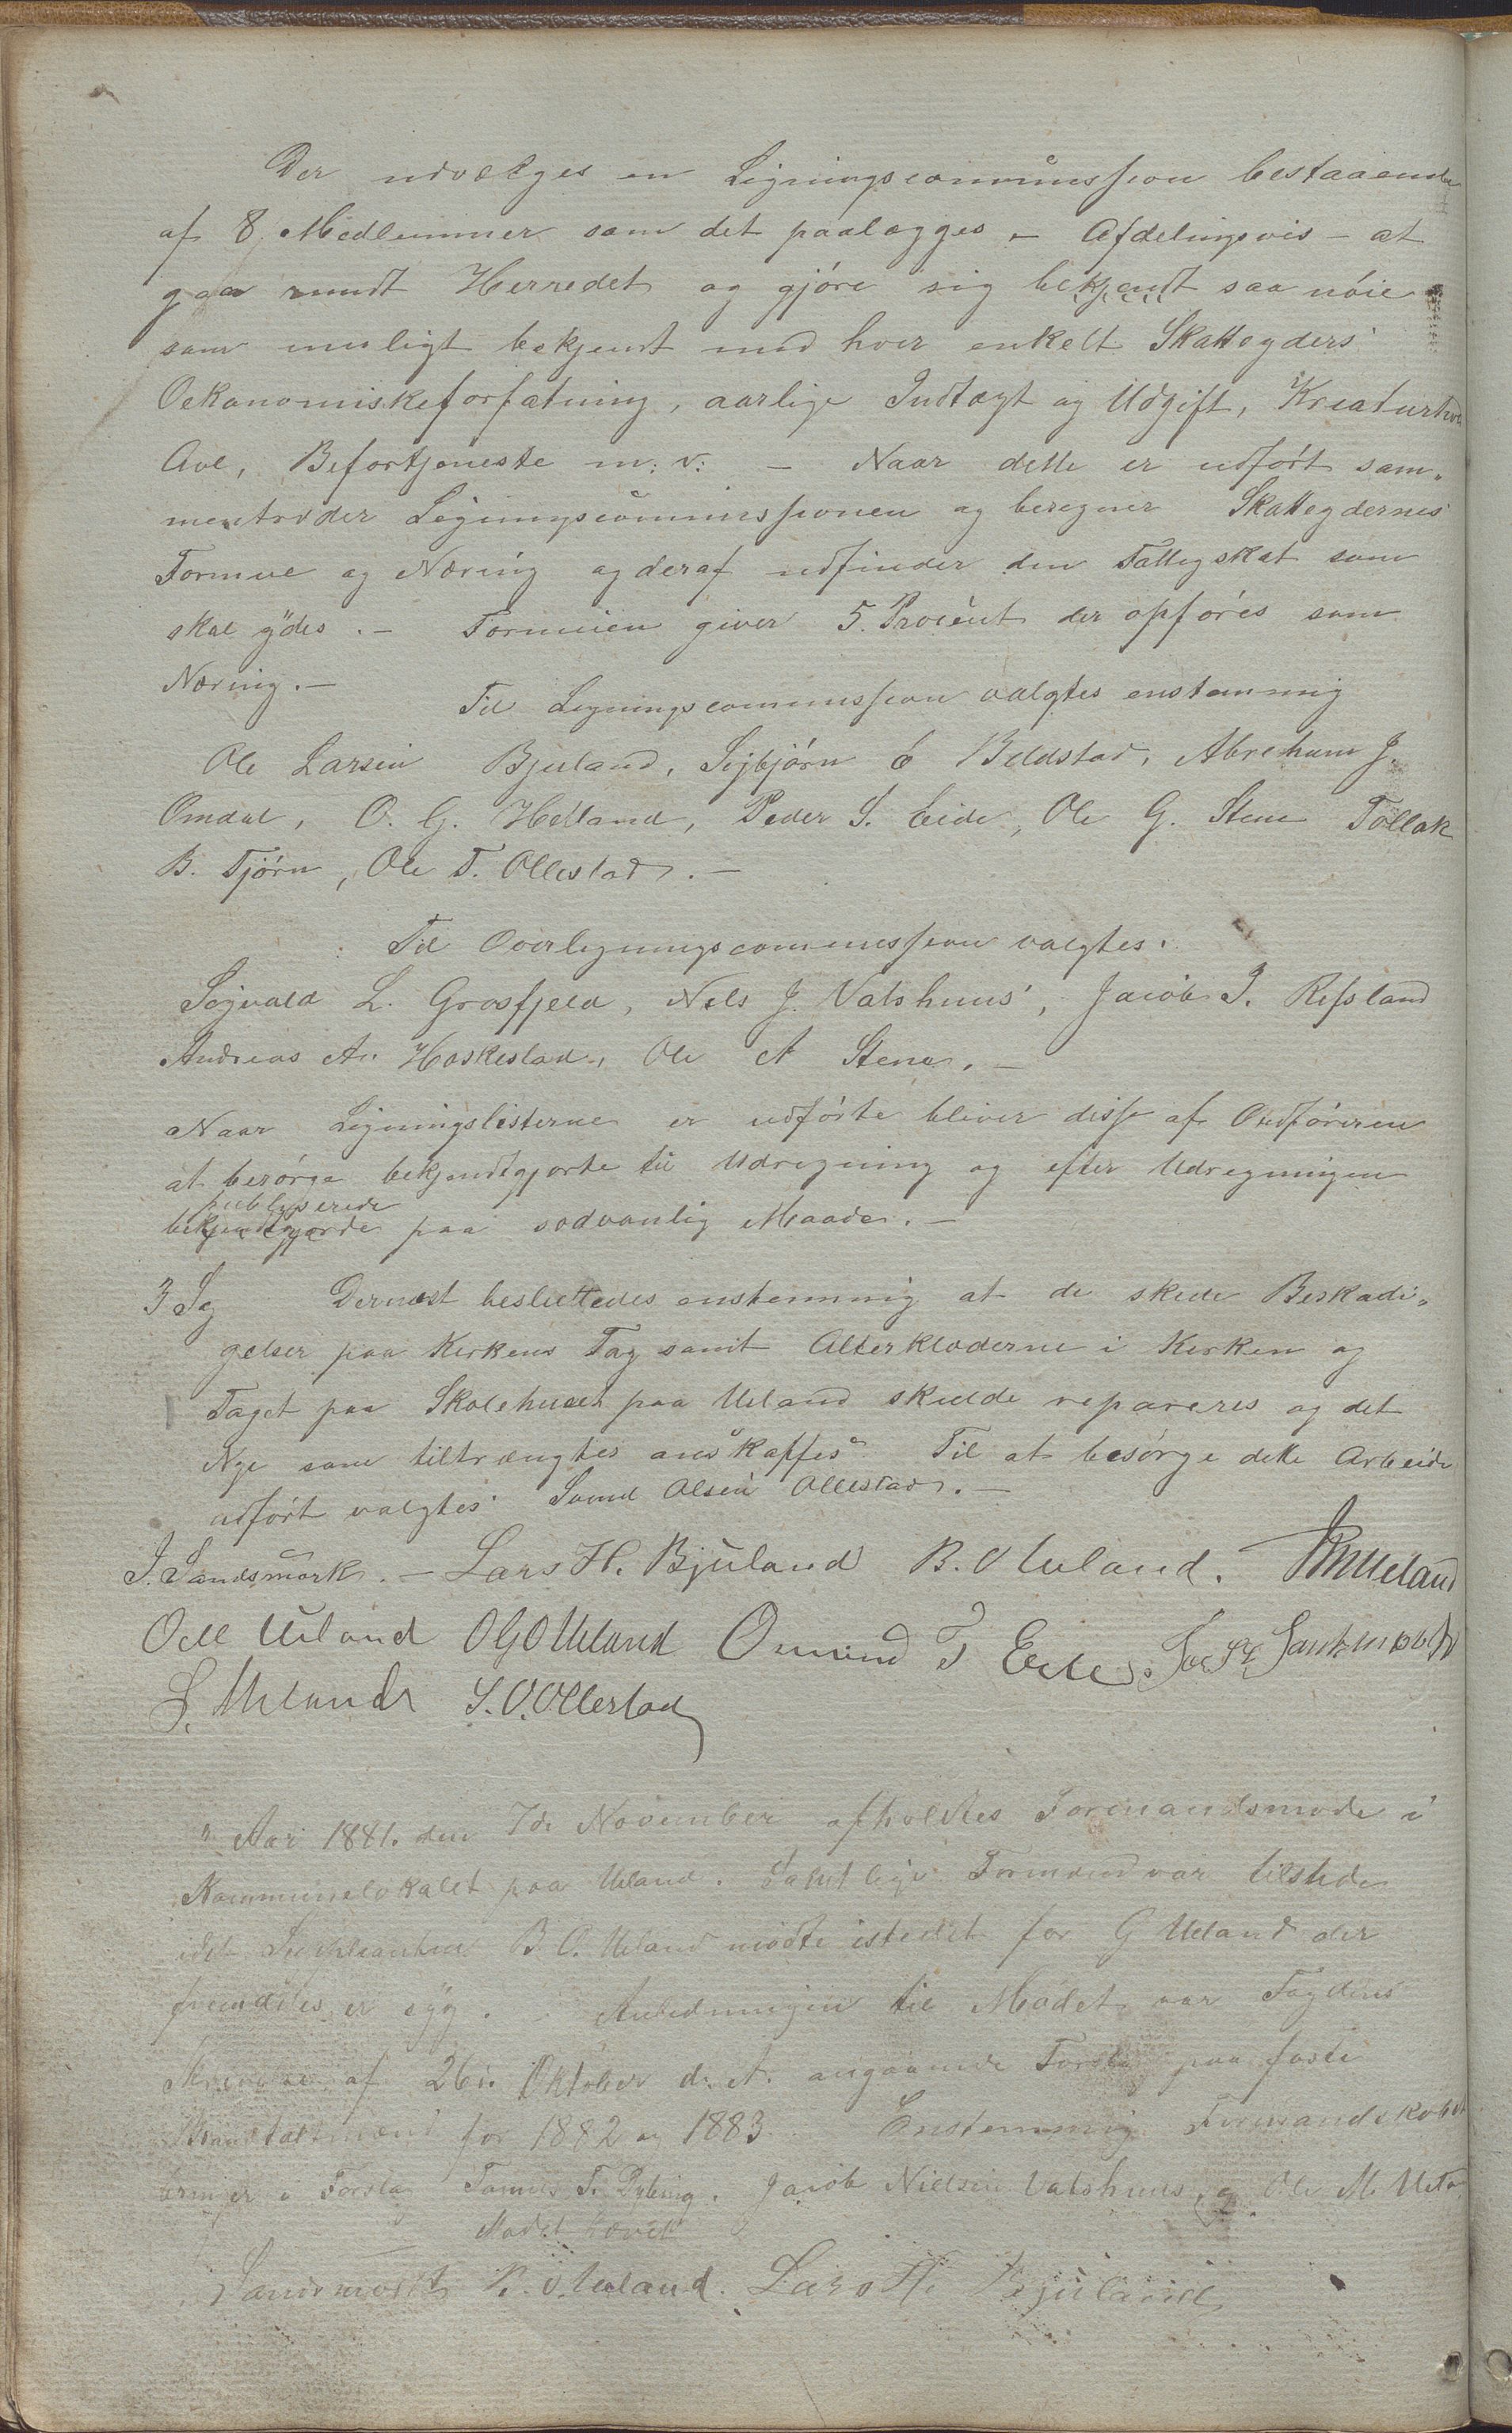 Der udvælges en Ligningscommission bestaaende
af 8 Medlemmer som det paalægges – Afdelingsvis – at
gaa rundt Herredet og gjöre sig bekjendt saa nöie
som muligt bekjent med hver enkelt Skatteyders
Oekonomiskeforfatning, aarlige Indtægt og Udgift, Kreaturhold
Avl, Befortjeneste m: v: – Naar dette er udfört sam„
mentræder Ligningscommissionen og beregner Skatteydernes
Formue og Næring og deraf udfinder den Fattigskat som
skal ydes. – Formuen giver 5. Procent der opföres som
Næring. –
Til Ligningscommission valgtes enstemmig
Ole Larsen Bjuland, Sigbjörn E Beldstad, Abreham J.
Omdal, O. G. Helland, Peder S. Eide, Ole G. Stene Tollak
B. Tjörn, Ole T. Ollestad. –
Til Overligningscommission valgtes.
Sigvald L. Grosfjeld, Nils J. Vatshuus, Jacob J. Refsland
Andreas A. Haskestad, Ole A Stene. –
Naar Ligningslisterne er udförte bliver disse af Ordföreren
at besörge bekjendtgjorte til Udregning og efter Udregningen
publiserede
bekjendtgjorde paa sædvanlig Maade. –
3 Sag Dernæst besluttedes enstemmig at de skede Beskadi„
gelser paa Kirkens Tag samt Alterklæderne i Kirken og
Taget paa Skolehuset paa Ueland skulde repareres og det
Nye som tiltrængtes anskaffes Til at besörge dette Arbeide
udfört valgtes Svend Olsen Ollestad. –
J. Sandsmark. – Lars H. Bjuland B. O Ueland. Ueland
Ueland O G O Ueland Omund T Eide
S. Ueland S. O. Ollestad
Aar 1881. den 7de November afholdtes Formandsmøde i
Kommunelokalet paa Ueland. Samtlige Formænd var tilstede
idet Suppleanten B O. Ueland mödte istedet for G Ueland der
fremdeles er syg. Anledningen til Mödet var Fogdens
Skrivelse af 26de Oktober d. A. angaaende Forslag paa faste
for 1882 og 1883. Enstemmig Formandskabet
bringer i Forslag Tønnes T. Dybing. Jacob Nielsen Vatshuus og Ole M. Uela
Mödet hævet
Sandsmark B. O Ueland. Lars H. Bjuland